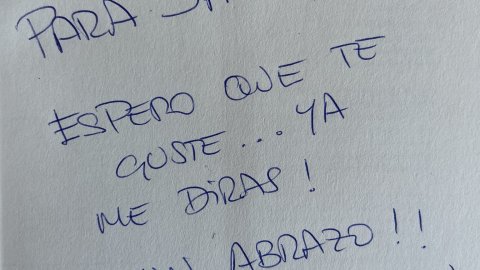 PARA
ESPERO QUE TE
GUSTE... YA
ME DiRAS!
UN ABRAZO!!